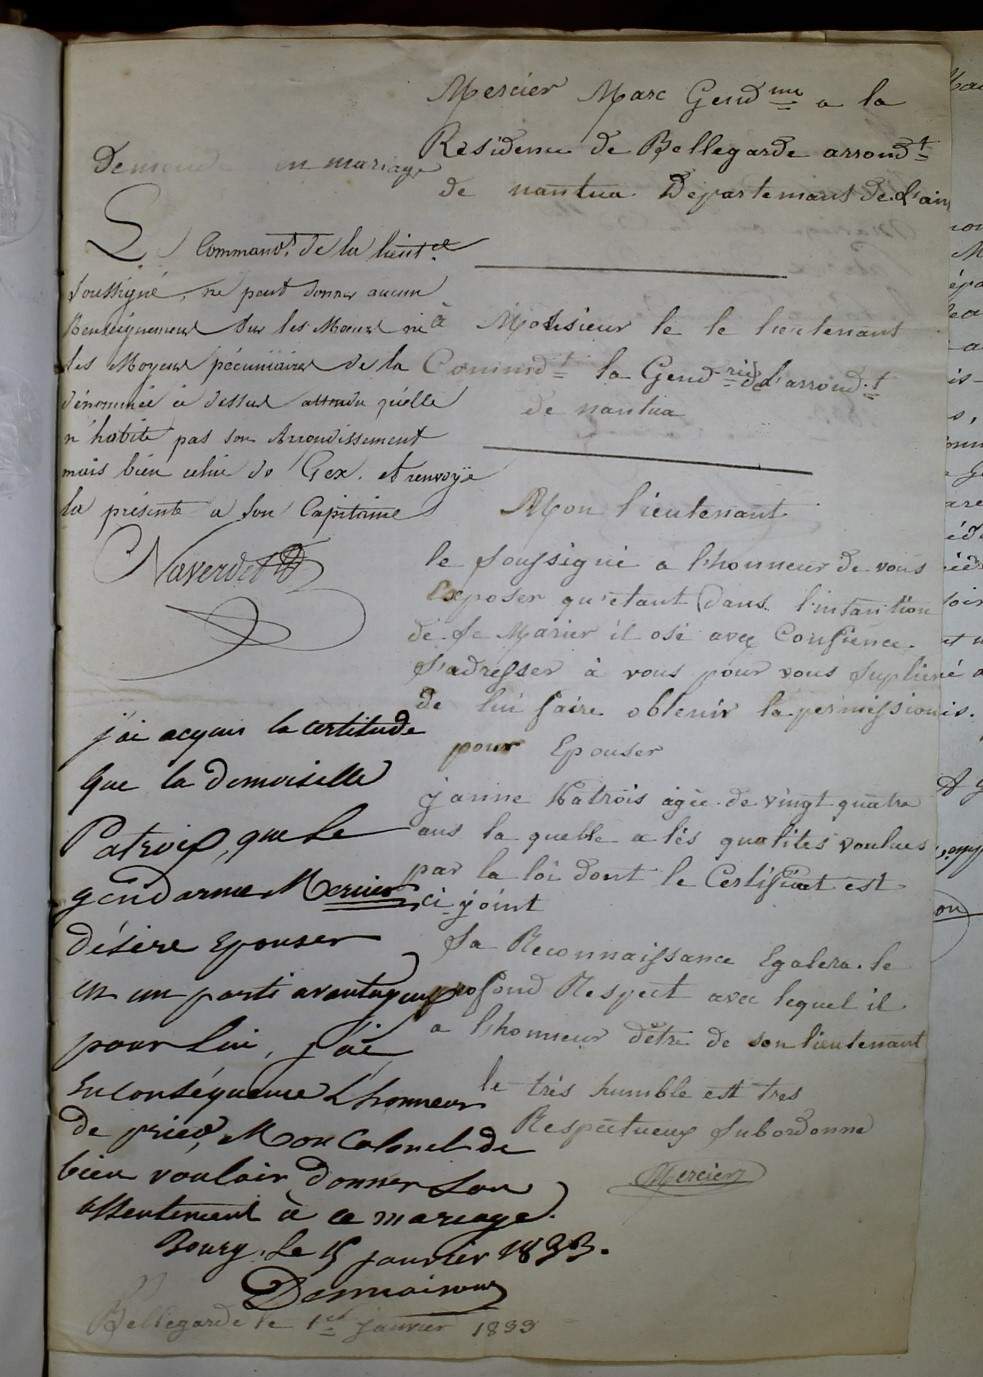 Mercier Marc Gend.me a la
Residence de Bellegarde arrond.t
de nantua Departemant de l'ain
à Monsieur le le lieutenant
Command.t la Gend.rie de l'arrond.t
de nantua
Mon lieutenant
le soussigné a l'honneur de vous
Exposer qu'etant dans l'intantion
de se Marier il ose avec Confience
s'adresser à vous pour vous suplier
de lui faire obtenir la permission
pour Epouser
janne Patrois agée de vingt quatre
ans la quelle a lés qualités voulues
par la loi dont le Certificat est
ci-joint
Sa Reconnaissance Egalera le
profond Respect avec lequel il
a l'honneur d'être de son lieutenant
le très humble est tres
Respectueux Subordonné
Mercier
Bellegarde le 1er janvier 1833
Demande en mariage
Le Command.t de la lieut.ce
soussigné, ne peut donner aucun
Renseignement sur les Mœurs ni
les Moyens pécuniaires de la
dénommée ci dessus attendu qu'elle
n'habite pas son Arrondissement
mais bien celui de Gex. et renvoye
la présente a son Capitaine
j'ai acquis la certitude
que la demoiselle
Patrois, que le
gendarme Mercier
désire Epouser
est un parti avantageux
pour lui, j'ai
En conséquence l'honneur
de prier, Mon Colonel de
bien vouloir donner son
assentement à ce mariage.
Bourg, le 15 janvier 1833.